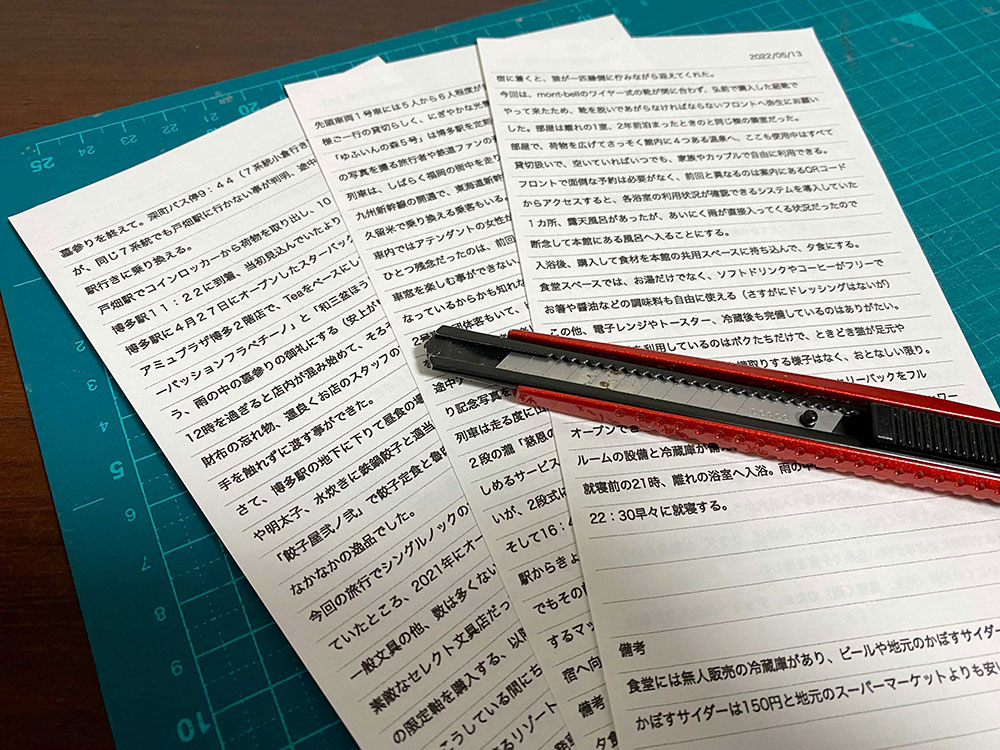 墓参りを終えて。深町バス停9：44（7系統小倉行き
が、同じ7系統でも戸畑駅に行かない事が判明、途中
駅行きに乗り換える。
戸畑駅でコインロッカーから荷物を取り出し、10
博多駅11：22に到着、当初見込んでいたより
博多駅に4月27日にオープンしたスターバック
アミュプラザ博多2階店で、Teaをベースにし
ーパッションフラペチーノ」と「和三盆ほう
う、雨の中の墓参りの御礼にする（安上が
12時を過ぎると店内が混み始めて、そろそ
財布の忘れ物、運良くお店のスタッフの
手を触れずに渡す事ができた。
さて、博多駅の地下に下りて昼食の場
や明太子、水炊きに鉄鍋餃子と適当
「餃子屋弐ノ弐」で餃子定食と魯
なかなかの逸品でした。
今回の旅行でシングルノックの
ていたところ、2021年にオー
一般文具の他、数は多くない
素敵なセレクト文具店だっ
の限定軸を購入する、以
こうしている間にち
るリゾート
先頭車両1号車には5人から6人程度が
様ご一行の貸切らしく、にぎやかな光
「ゆふいんの森5号」は博多駅を定刻
の写真を撮る旅行者や鉄道ファンの
列車は、しばらく福岡の街中を走り
九州新幹線の開通で、東海道新幹
久留米で乗り換える乗客もいる。
車内ではアテンダントの女性が
ひとつ残念だったのは、前回
車窓を楽しむ事ができない。
なっているからかも知れな
2号
団体客もいて、
途中
り記念写真を
列車は走る度に
2段の滝「慈恩の
しめるサービス
いが、2段式に
そして16：4
駅からきよ
でもその
するマッ
宿へ向
備考
夕食
2022/05/13
宿に着くと、猫が一匹縁側に佇みながら迎えてくれた。
今回は、mont-bellのワイヤー式の靴が間に合わず、弘前で購入した紐靴で
やって来たため、靴を脱いであがらなければならないフロントへ弥生にお願い
した。部屋は離れの1室、2年前泊まったときのと同じ棟の隣室だった。
部屋で、荷物を広げてさっそく館内に4つある温泉へ、ここも使用中はすべて
貸切扱いで、空いていればいつでも、家族やカップルで自由に利用できる。
フロントで面倒な予約は必要がなく、前回と異なるのは案内にあるQRコード
からアクセスすると、各浴室の利用状況が確認できるシステムを導入していた
1カ所、露天風呂があったが、あいにく雨が直接入ってくる状況だったので
断念して本館にある風呂へ入ることにする。
入浴後、購入して食材を本館の共用スペースに持ち込んで、夕食にする。
食堂スペースでは、お湯だけでなく、ソフトドリンクやコーヒーがフリーで
お箸や醤油などの調味料も自由に使える（さすがにドレッシングはないが）
この他、電子レンジやトースター、冷蔵後も完備しているのはありがたい。
を利用しているのはボクたちだけで、ときどき猫が足元や
横取りする様子はなく、おとなしい限り。
リーパックをフル
ワー
オープンでき
ルームの設備と冷蔵庫が備
就寝前の21時、離れの浴室へ入浴。雨の中
22：30早々に就寝する。
備考
食堂には無人販売の冷蔵庫があり、ビールや地元のかぼすサイダー
かぼすサイダーは150円と地元のスーパーマーケットよりも安い